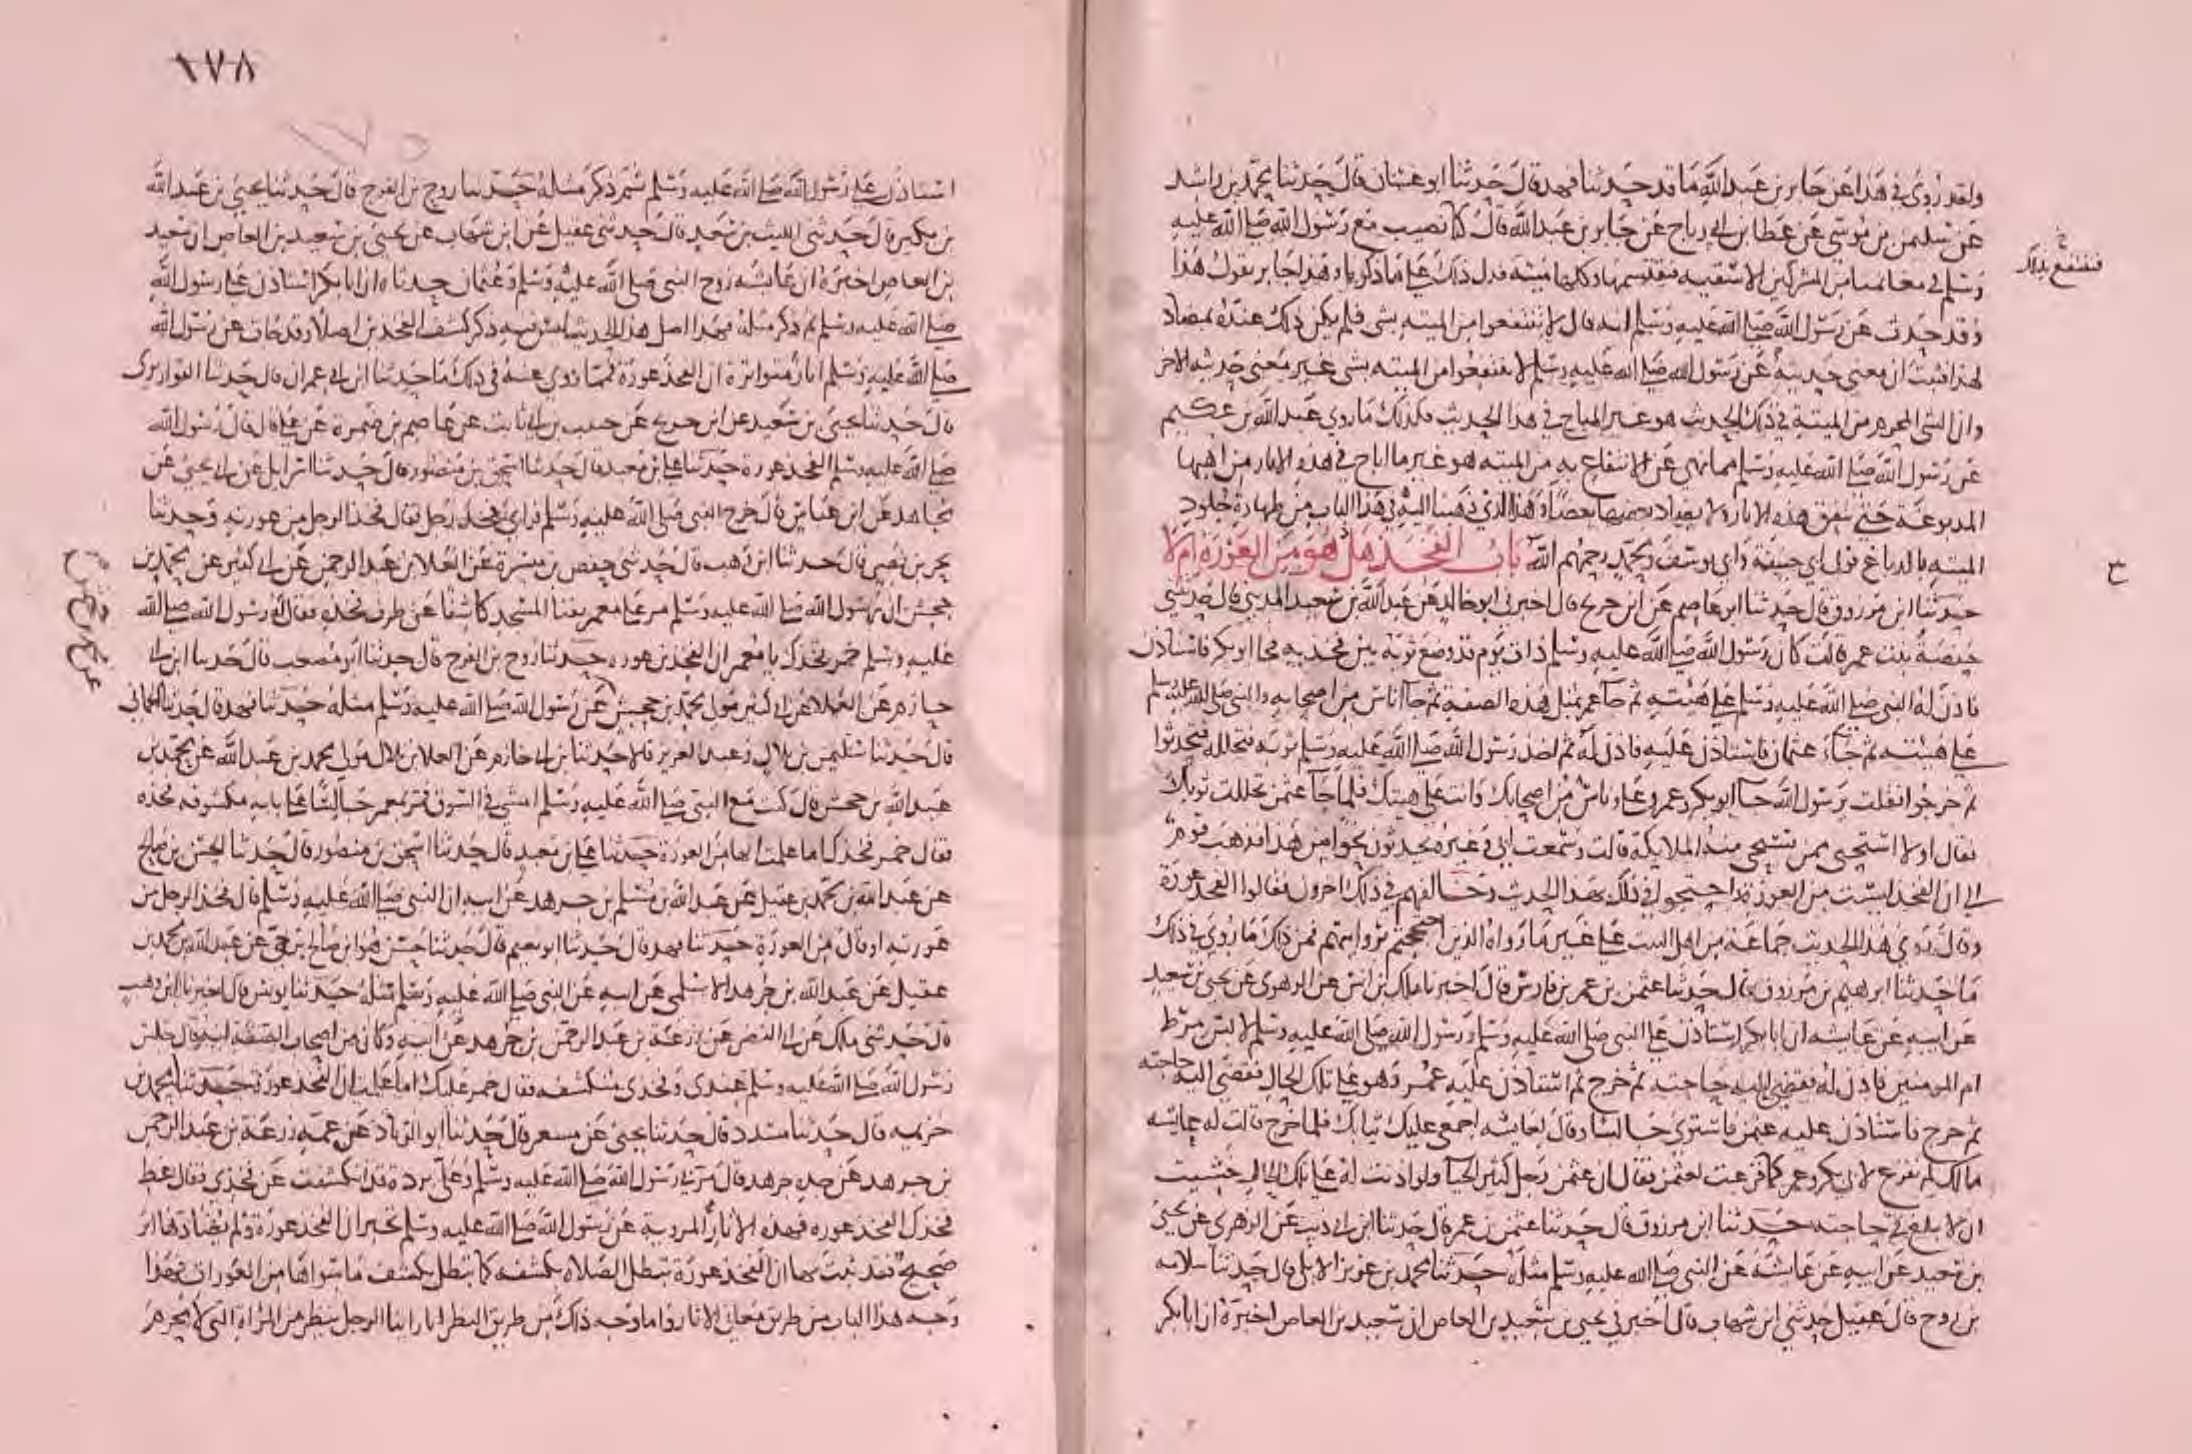 ولقد روي في هذا عن جابر بن عبد الله ما قد حدثنا فهد قال حدثنا ابو غسان قال حدثنا محمد بن راشد
عن سليمن بن موسى عن عطا بن ابي رباح عن جابر بن عبد الله قال كنا نصيب مع رسول الله صلى الله عليه
وسلم في مغانمنا من المشركين الاسقيه فنقتسمها وكلها ميته فدل ذلك على ما ذكرنا وهذا جابر يقول هذا
فننتفع بذلك
وقد حدث عن رسول الله صلى الله عليه وسلم انه قال لا تنتفعوا من الميته بشى فلم يكن ذلك عنده بمضاد
لهذا فثبت ان معنى حديثه عن رسول الله صلى الله عليه وسلم لا تنتفعوا من الميته بشى غير معنى حديثه الاخر
وان الشى المحرم من الميتة في ذلك الحديث هو غير المباح في هذا الحديث فكذلك ما روي عبد الله بن عكيم
عن رسول الله صلى الله عليه وسلم مما نهى عن الانتفاع به من الميته هو غير ما اباح في هذه الاثار من اهبها
المدبوغة حتى تتفق هذه الاثار ولا يضاد بعضها بعضا وهذا الذي ذهبنا اليه في هذا الباب من طهارة جلود
الميته بالدباغ قول ابي حنيفة وابي يوسف ومحمد رحمهم الله باب الفخذ هل هو من العورة ام لا
ح
حدثنا ابن مرزوق قال حدثنا ابو عاصم عن ابن جريج قال اخبرني ابو خالد عن عبد الله بن سعيد المديني قال حدثتني
حفصة بنت عمر قالت كان رسول الله صلى الله عليه وسلم ذات يوم قد وضع ثوبه بين فخذيه فجا ابو بكر فاستاذن
فاذن له النبي صلى الله عليه وسلم على هيئته ثم جا عمر بمثل هذه الصفة ثم جا اناس من اصحابه والنبي صلى الله عليه وسلم
على هيئته ثم جاء عثمان فاستاذن عليه فاذن له ثم اخذ رسول الله صلى الله عليه وسلم ثوبه فتجلله فتحدثوا
ثم خرجوا فقلت يرسول الله جا ابو بكر وعمر وعلى وناس من اصحابك وانت على هيئتك فلما جا عثمن تجللت ثوبك
فقال اولا استحيى ممن تستحيى منه الملايكة قالت وسمعت ابي وغيره يحدثون نحوا من هذا فذهب قوم
الى ان الفخذ ليست من العورة واحتجوا في ذلك بهذا الحديث وخالفهم في ذلك اخرون فقالوا الفخذ عورة
وقال روي هذا الحديث جماعة من اهل البيت على غير ما رواه الذين احتججتم بروايتهم فمن ذلك ما روي في ذلك
ما حدثنا ابرهيم بن مرزوق قال حدثنا عثمن بن عمر بن فارس قال اخبرنا ملك بن انس عن الزهري عن يحيى بن سعيد
عن ابيه عن عايشه ان ابا بكر استاذن على النبي صلى الله عليه وسلم ورسول الله صلى الله عليه وسلم لابس مرط
ام المومنين فاذن له فقضى اليه حاجته ثم خرج ثم استاذن عليه عمر وهو على تلك الحال فقضى اليه حاجته
ثم خرج فاستاذن عليه عثمن فاستوى جالسا وقال لعايشه اجمعي عليك ثيابك فلما خرج قالت له عايشه
مالك لم تفزع لابي بكر وعمر كما فزعت لعثمن فقال ان عثمن رجل كثير الحيا ولو اذنت له على تلك الحال خشيت
ان لا يبلغ في حاجته حدثنا ابن مرزوق قال حدثنا عثمن بن عمر قال حدثنا ابن ابي ذيب عن الزهري عن يحيى
بن سعيد عن ابيه عن عائشة عن النبي صلى الله عليه وسلم مثله حدثنا محمد بن عزيز الايلي قال حدثنا سلامه
بن روح قال عقيل حدثني ابن شهاب قال اخبرني يحيى بن سعيد بن العاص ان سعيد بن العاص اخبره ان ابا بكر
١٧٨
١٧٥
استاذن على رسول الله صلى الله عليه وسلم ثم ذكر مثله حدثنا روح بن الفرج قال حدثنا يحيى بن عبد الله
بن بكير قال حدثني الليث بن سعد قال حدثني عقيل عن ابن شهاب عن يحيى بن سعيد بن العاص ان سعيد
بن العاص اخبره ان عايشه زوج النبي صلى الله عليه وسلم وعثمان حدثاه ان ابا بكر استاذن على رسول الله
صلى الله عليه وسلم ثم ذكر مثله فهذا اصل هذا الحديث ليس فيه ذكر كشف الفخذين اصلا وقد جات عن رسول الله
صلى الله عليه وسلم اثار متواترة ان الفخذ عورة فمما روي عنه في ذلك ما حدثنا ابن ابي عمران قال حدثنا القواريري
قال حدثنا يحيى بن سعيد عن ابن جريج عن حبيب بن ابي ثابت عن عاصم بن ضمرة عن علي قال قال رسول الله
صلى الله عليه وسلم الفخذ عورة حدثنا علي بن معبد قال حدثنا اسحق بن منصور قال حدثنا اسرايل عن ابي يحيى عن
مجاهد عن ابن عباس قال خرج النبي صلى الله عليه وسلم فراى فخذ رجل فقال فخذ الرجل من عورته وحدثنا
بحر بن نصر قال حدثنا ابن وهب قال حدثني حفص بن ميسرة عن العلا بن عبد الرحمن عن ابي كثير عن محمد بن
جحش ان رسول الله صلى الله عليه وسلم مر على معمر بفنا المسجد كاشفا عن طرف فخذه فقال له رسول الله صلى الله
عليه وسلم خمر فخذك يا معمر ان الفخذ من عوره حدثنا روح بن الفرج قال حدثنا ابو مصعب قال حدثنا ابن ابي
حازم عن العلا عن ابي كثير مولى محمد بن جحش عن رسول الله صلى الله عليه وسلم مثله حدثنا فهد قال حدثنا الحماني
قال حدثنا سليمن بن بلال وعبد العزيز قالا حدثنا بن ابي حازم عن العلا بن بلال مولى محمد بن عبد الله عن محمد بن
عبد الله بن جحش قال كنت مع النبي صلى الله عليه وسلم امشي في السوق فمر بمعمر جالسا على بابه مكشوفه فخذه
فقال خمر فخذك اما علمت انها من العورة حدثنا علي بن معبد قال حدثنا اسحق بن منصور قال حدثنا الحسن بن صالح
عن عبد الله بن محمد بن عقيل عن عبد الله بن مسلم بن جرهد عن ابيه ان النبي صلى الله عليه وسلم قال فخذ الرجل من
عورته او قال من العورة حدثنا فهد قال حدثنا ابو نعيم قال حدثنا حسن هو ابن صالح بن حي عن عبد الله بن محمد بن
عقيل عن عبد الله بن جرهد الاسلمى عن ابيه عن النبي صلى الله عليه وسلم مثله حدثنا يونس قال اخبرنا ابن وهب
قال حدثني ملك عن ابي النضر عن زرعة بن عبد الرحمن بن جرهد عن ابيه وكان من اصحاب الصفة انه قال جلس
رسول الله صلى الله عليه وسلم عندي وفخذى منكشفه فقال خمر عليك اما علمت ان الفخذ عورة حدثنا محمد بن
خزيمه قال حدثنا مسدد قال حدثنا يحيى عن مسعر قال حدثنا ابو الزناد عن عمه زرعة بن عبد الرحمن
بن جرهد عن جده جرهد قال مر بي رسول الله صلى الله عليه وسلم وعلي بردة قد انكشفت عن فخذي فقال غط
فخذك الفخذ عوره فهذه الاثار المروية عن رسول الله صلى الله عليه وسلم تخبر ان الفخذ عورة ولم يضادها اثر
صحيح فقد ثبت بها ان الفخذ عورة تبطل الصلاه بكشفه كما تبطل بكشف ما سواها من العورات فهذا
وجه هذا الباب من طريق معاني الاثار واما وجه ذلك من طريق النظر انا راينا الرجل ينظر من المراة التي لا محرم